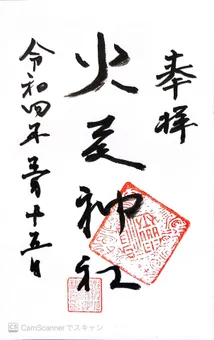 奉拝
火走神社
令和四年五月十五日
CamScannerでスキャン